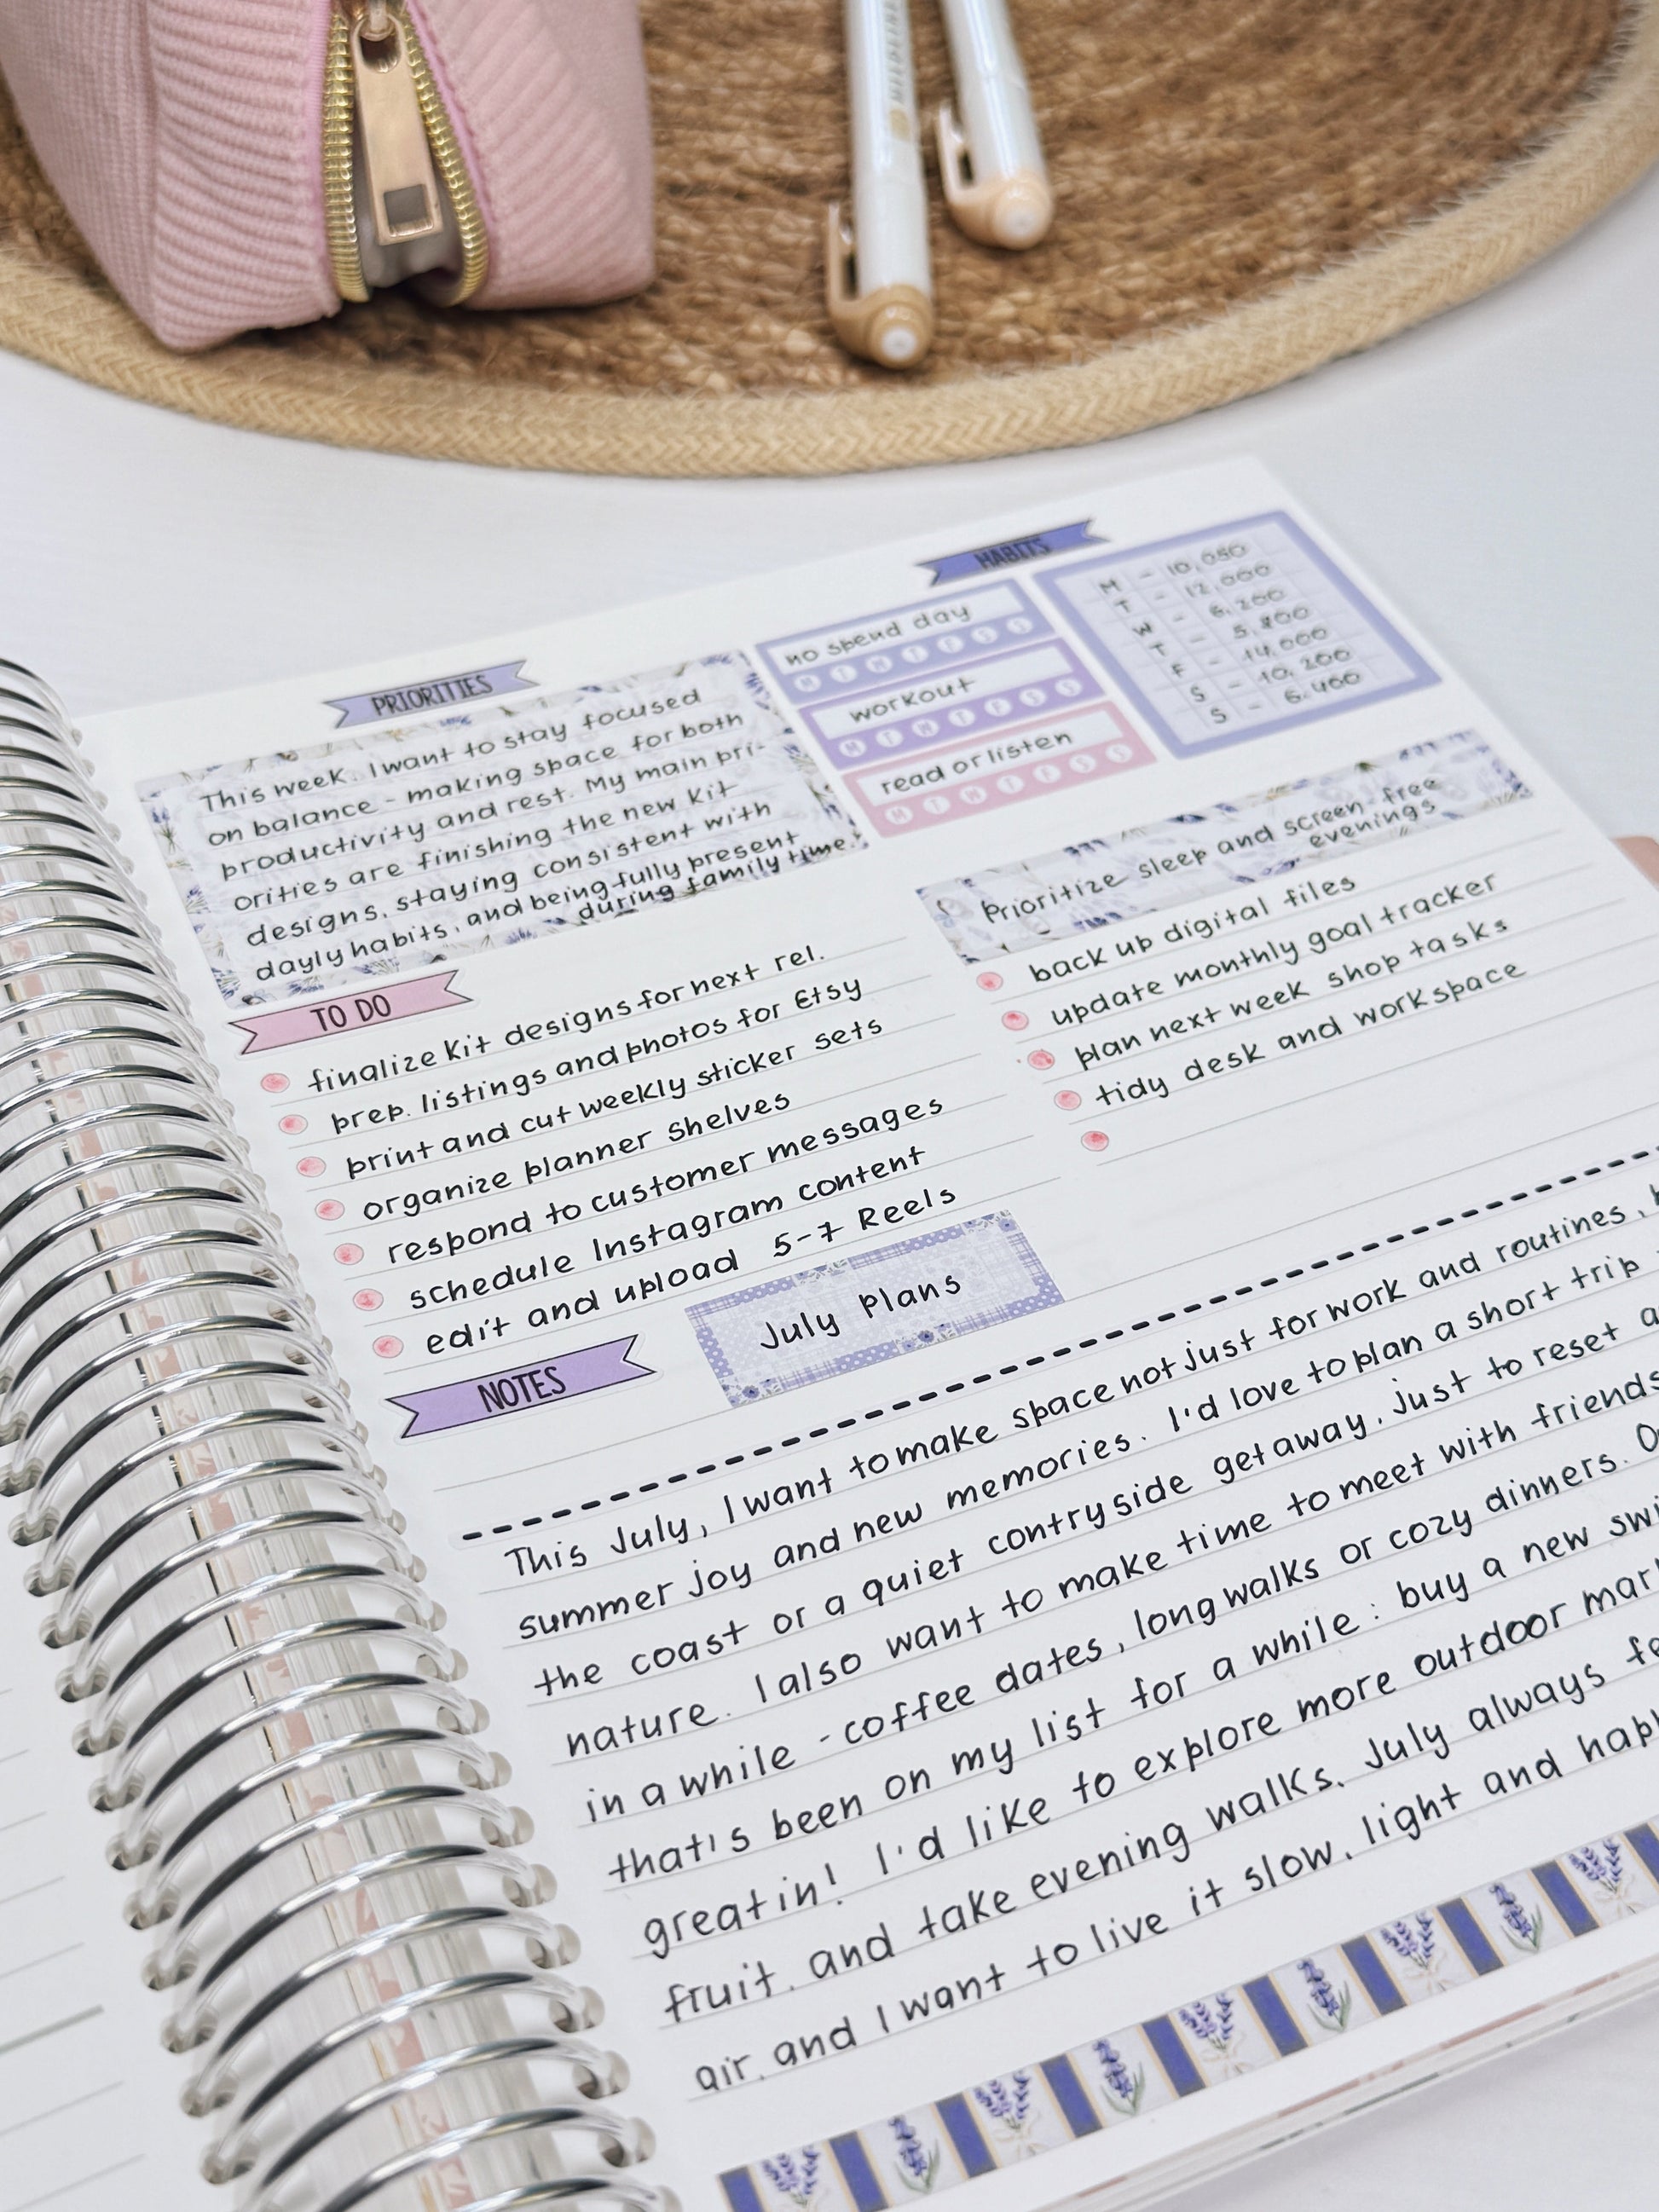 HABITS
no spend day
M T W T F S S
workout
M T W T F S S
read or listen
M T W T F S S
M - 10,050
T - 12,000
W - 6,200
T -
F - 14,000
S - 10,200
S - 6,400
PRIORITIES
This week, I want to stay focused
on balance - making space for both
productivity and rest. My main pri-
orities are finishing the new kit
designs, staying consistent with
dayly habits, and being fully present
during family time.
TO DO
finalize kit designs for next rel.
prep. listings and photos for Etsy
print and cut weekly sticker sets
organize planner shelves
respond to customer messages
schedule Instagram content
edit and upload 5-7 Reels
Prioritize sleep and screen-free
evenings
back up digital files
update monthly goal tracker
plan next week shop tasks
tidy desk and workspace
NOTES
July plans
This July, I want to make space not just for work and routines,
summer joy and new memories. I'd love to plan a short trip
the coast or a quiet contryside getaway, just to reset
nature. I also want to make time to meet with friends
in a while - coffee dates, long walks or cozy dinners.
that's been on my list for a while : buy a new
great in! I'd like to explore more outdoor
fruit, and take evening walks. July always
air, and I want to live it slow, light and